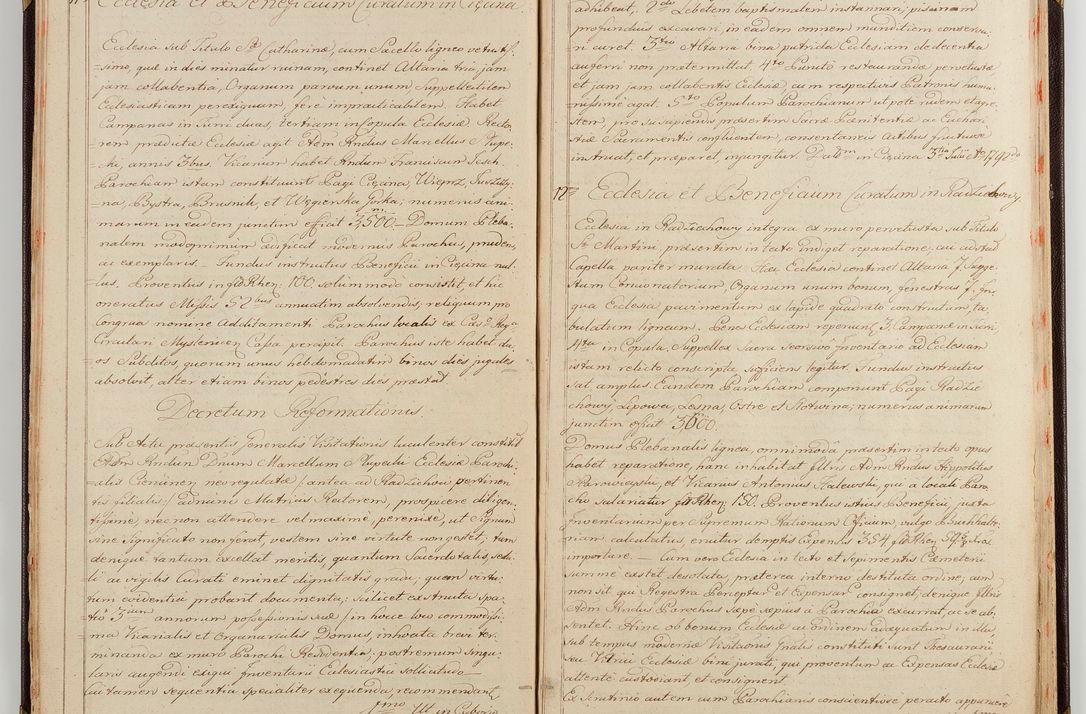 Ecclesia et Beneficium Curatum in Cięcina
Ecclesia sub Titulo Stæ Catharinæ, cum Sacello ligneo vetustis=
=simo, quæ in dies minatur ruinam, continet Altaria tria, jam
jam collabentia, Organum parvum unum, Suppellectilem
Ecclesiasticam perexiguam, fere impracticabilem. Habet
Campanas in Turri duas, tertiam in Copula Ecclesiæ. Recto=
=rem prædictæ Ecclesiæ agit Adm Rndus Marcellus
annis 3bus. Vicarium habet Rndum Franciscum
Parochiam istam constituunt Pagi Cięcina, Wieprz,
=na, Bystra, Brusnik, et Węgierska Gorka; numerus ani=
=marum in eadem junctim efficit 3,500. Domum Pleba=
nalem modo primum ædificat modernus Parochus, prudens,
ac exemplaris. Fundus instructus Beneficii in Cięcina nul=
=lus, Proventus in flo Rhen: 100 solummodo consistit, et hic
oneratus Missis 52bus annuatim absolvendis, reliquum pro
Congrua nomine Additamenti Parochus localis ex Cass:
Circulari Myslenicen Cassa percipit. Parochus iste habet du=
os Subditos, quorum unus hebdomadatim binos dies jugales
absolvit, alter etiam binos pedestres dies præstat
Decretum Reformationis.
Sub Actu præsentis Generalis Visitationis luculenter constitit
Adm Rndum Dnum Marcellum Ecclesiæ Parochi=
=alis Ciencinen neoregulatæ /: antea ad Radziechow pertinen=
tis filialis :/ ad nunc Matricis Rectorem, prospicere diligen=
tissime, nec non attendere vel maxime, perenixe, ut Signum
sine significato non ferat, vestem sine virtute non gestet, tum
denique tantum excellat meritis, quantum Sacerdotalis,
ac vigilis Curati eminet dignitatis gradu; quem virtu=
tum evidentiæ probant documenta; scilicet exstructa spa=
=tio 3ium annorum possessionis suæ in hocce loco commodissi=
ma Vicarialis et Organarialis Domus, inhoata brevi ter=
minanda ex muro Parochi Residentia; postremum singu=
laris augendi exigui Inventarii Ecclesiastici sollicitudo
cui tamen sequentia specialiter exequenda, recommendant
1mo Ut in Ciborio
adhibeat, 2do Lebetem baptismalem instannari, piscinam
profundius excavari, in eadem omnem munditiem conserva=
ri curet. 3tio Altaria bina putrida Ecclesiam dedecentia
auferri non prætermittat 4to Puncto restaurandæ pervetustæ
et jam jam collabentis Ecclesiæ, cum respectivis Patronis huma=
=nissime agat. 5to Populum Parochianum ut pote rudem et agre=
stem, pro suscipiendis præsertim Sacræ Pænitentiæ ac Euchari=
stiæ Sacramentis confluentem, consentaneis Actibus fructuose
instruat, et præparet injungitur. Datum in Cięcina 3tia Julii Ao 1792do
17mo Ecclesia et Beneficium Curatum in Radziechowy
Ecclesia in Radziechowy integra ex muro pervetusta sub Titulo
Sti Martini, præsertim in tecto indiget reparatione; cui adstat
Capella pariter murata. Hæc Ecclesia continet Altaria 7. Sugge=
stum Concionatorium, Organum unum bonum, fenestras 7.
qua Ecclesia pavimentum ex lapide quadrato constructum, ta=
bulatum ligneum. Penes Ecclesiam reperiunt 3. Campanæ in Turri
4ta in Copula. Suppellex Sacra Inventario ad Ecclesiam
istam relicto conscripta sufficiens legitur. Fundus instructus
sat amplus. Eandem Parochiam componunt Pagi Radzie=
chowy, Lipowa, Lesna, Ostre et Słotwina; numerus animarum
junctim efficit 3600.
Domus Plebanalis lignea, omnimoda præsertim in tecto opus
habet reparatione, hanc inhabitat Illris Adm Rndus Hyppolitus
et Vicarius Antonius Stalewski, qui a locali Paro=
cho salariatur flo Rhen: 150. Proventus istius Beneficii, juxta
Inventarium per Supremum Rationum Officium, vulgo Buchhalte=
riam calculatus, eruitur demptis Expensis 354 flo Rhen:
importare. Cum vero Ecclesia in tecto et sepimentis Cæmeterii
summe exstet desolata, præterea interno destituta ordine, cum
non sit qui Regestra Percepta et Expensa consignet, denique Illris
Adm Rndus Parochus sæpe sæpius a Parochia excurrat, ac se ab=
sentet. Hinc ob bonum Ecclesiæ ac ordinem adæquatum in illa
sub tempus modernæ Visitationis Gnalis constituti sunt Thesaurarii
seu Vitrici Ecclesiæ bini jurati, qui proventum ac Expensas Ecclesiæ
attente custodiant, et consignent.
Ex Scrutinio autem cum Parochianis conscientiose peracto apparuere